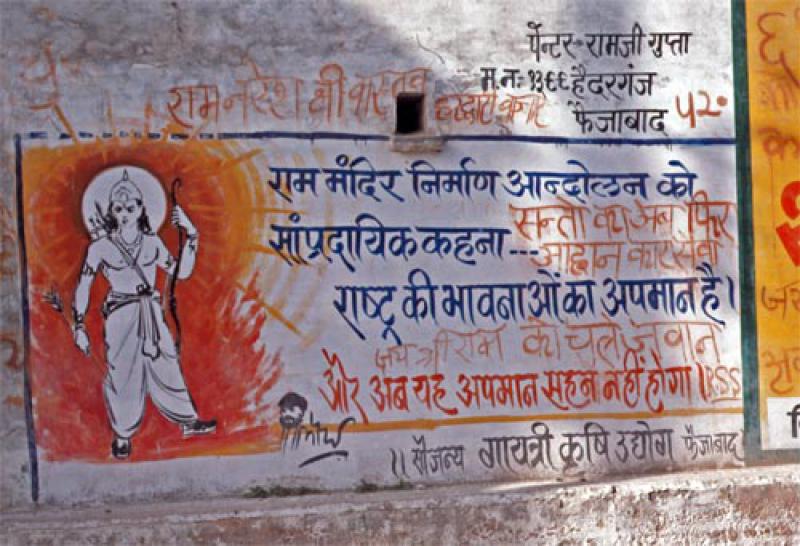 पेंन्टर - रामजी गुप्ता
म.न. १३६६ हैदरगंज
फैजाबाद ५२०
राम नरेश श्री वास्तव
राम मंदिर निर्माण आन्दोलन को
सन्तो का अब फिर
सांप्रदायिक कहना ---
आह्वान कार सेवा
राष्ट्र की भावनाओं का अपमान है।
जय श्री राम को चल जवान
और अब यह अपमान सहन नहीं होगा। RSS
॥ सौजन्य गायत्री कृषि उद्योग फैजाबाद